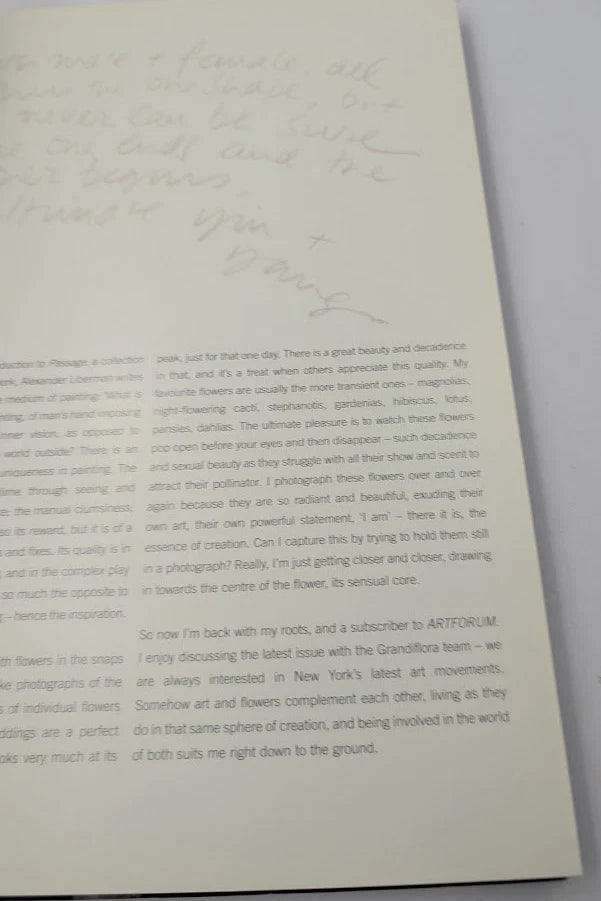 male + female, all
in one shape, but
never can be sure
one ends and the
begins.
yin +
yang
duction to Passage, a collection
erk, Alexander Liberman writes
e medium of painting: 'What is
nting, of man's hand imposing
inner vision, as opposed to
world outside? There is an
uniqueness in painting. The
time through seeing and
e; the manual clumsiness,
so its reward, but it is of a
s and fixes. Its quality is in
, and in the complex play
so much the opposite to
– hence the inspiration.
th flowers in the snaps
ke photographs of the
s of individual flowers
ddings are a perfect
oks very much at its
peak, just for that one day. There is a great beauty and decadence
in that, and it's a treat when others appreciate this quality. My
favourite flowers are usually the more transient ones – magnolias,
night-flowering cacti, stephanotis, gardenias, hibiscus, lotus,
pansies, dahlias. The ultimate pleasure is to watch these flowers
pop open before your eyes and then disappear – such decadence
and sexual beauty as they struggle with all their show and scent to
attract their pollinator. I photograph these flowers over and over
again because they are so radiant and beautiful, exuding their
own art, their own powerful statement, 'I am' – there it is, the
essence of creation. Can I capture this by trying to hold them still
in a photograph? Really, I'm just getting closer and closer, drawing
in towards the centre of the flower, its sensual core.
So now I'm back with my roots, and a subscriber to ARTFORUM.
I enjoy discussing the latest issue with the Grandiflora team – we
are always interested in New York's latest art movements.
Somehow art and flowers complement each other, living as they
do in that same sphere of creation, and being involved in the world
of both suits me right down to the ground.